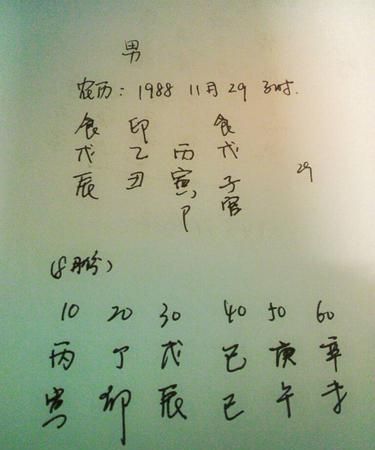 男
农历: 1988 11月29 子时.
食 印 食
戊 乙 丙 戊
辰 丑 寅 子 29
官
10 20 30 40 50 60
丙 丁 戊 己 庚 辛
寅 卯 辰 巳 午 未